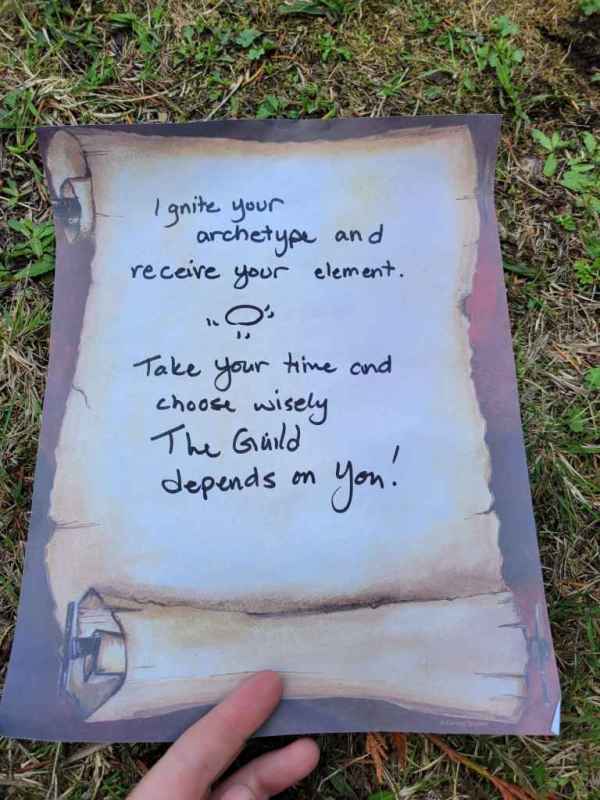 Ignite your
archetype and
receive your element.
Take your time and
choose wisely
The Guild
depends on You!